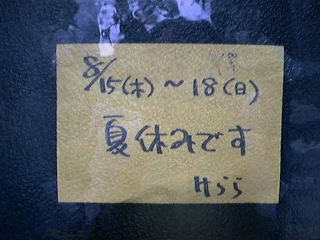 8/15(木)〜18(日)
夏休みです
けらら